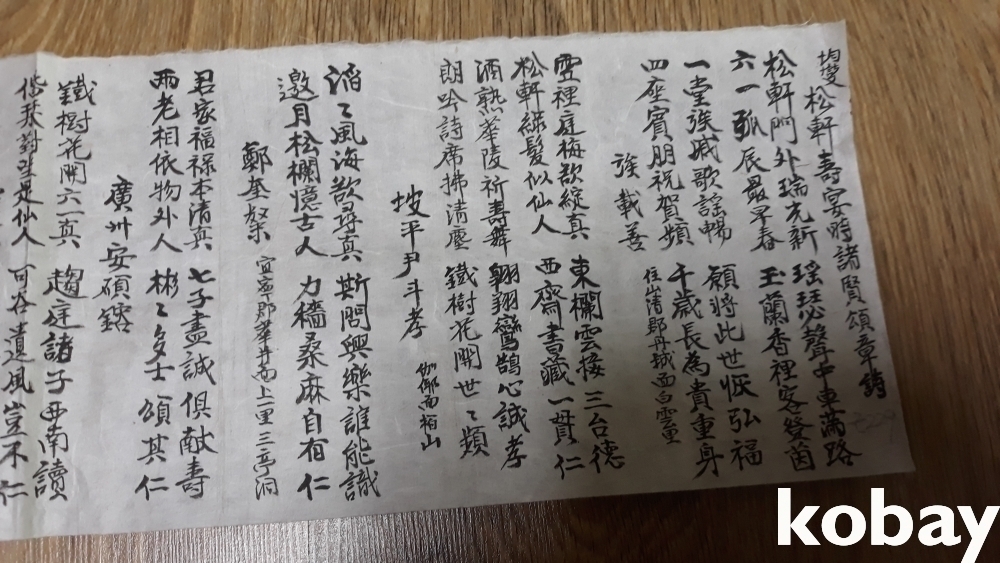 松軒壽宴時諸賢頌章
松軒門外瑞光新 瑤瑟聲中車滿路
六一弧辰最早春 玉蘭香裡客登茵
一堂族戚歌謠暢 願將此世恢弘福
四座賓朋祝賀頻 千歲長為貴重身
族 載善 住山淸郡丹城面白雲里
雪裡庭梅欲綻眞 東欄雲接三台德
松軒綠髮似仙人 西齋書藏一貫仁
酒熟華陵祈壽舞 翱翔鸞鵠心誠孝
朗吟詩席拂清塵 鐵樹花開世々頻
坡平尹斗孝
滔々風海欲尋眞 斯問興樂誰能識
邀月松欄憶古人 力穡桑麻自有仁
鄭奎燦 宜寧郡華井面上一里三亭洞
君家福禄本清眞 七子盡誠俱献壽
兩老相依物外人 彬々多士頌其仁
廣州安碩鎔
鐵樹花開六一眞 趨庭諸子西南讀
偕發對坐是仙人 遺風豈不仁
kobay